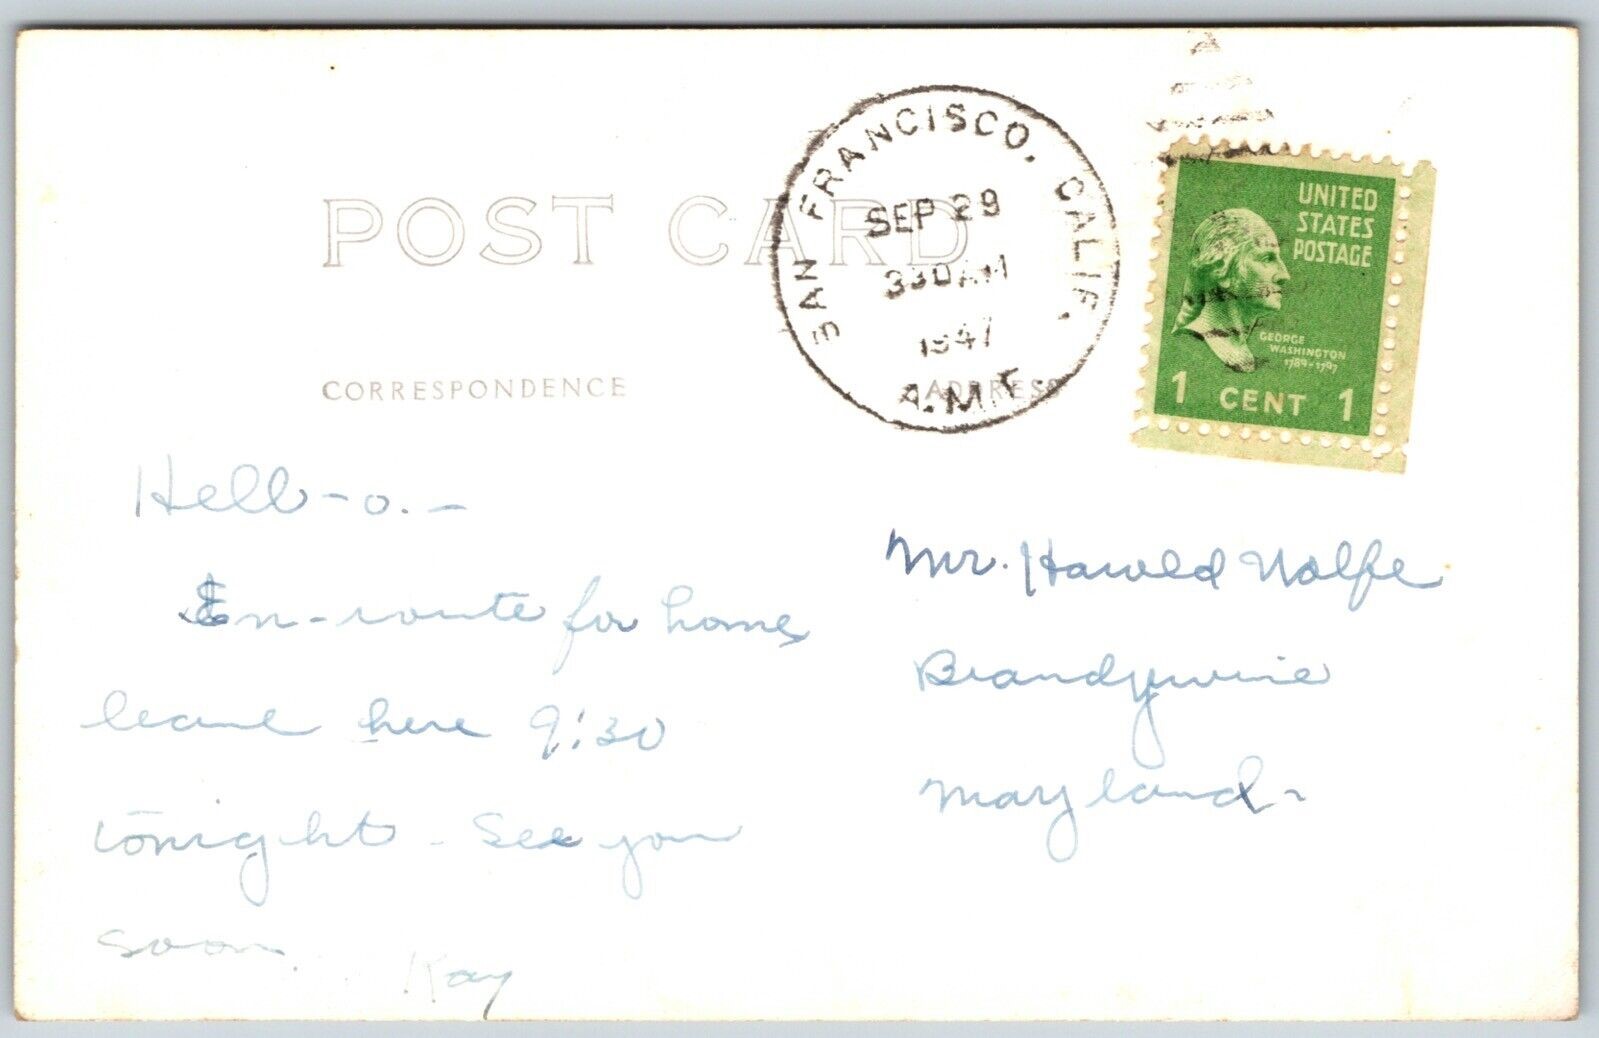 POST CARD
SAN FRANCISCO, CALIF.
SEP 29
330 AM
1947
A.M.F.
UNITED
STATES
POSTAGE
GEORGE
WASHINGTON
1789-1797
1 CENT 1
CORRESPONDENCE
ADDRESS
Hell-o.-
En-route for home
leave here 9:30
tonight - See you
soon.
Kay
Mr. Harold Wolfe
Brandywine
Maryland-